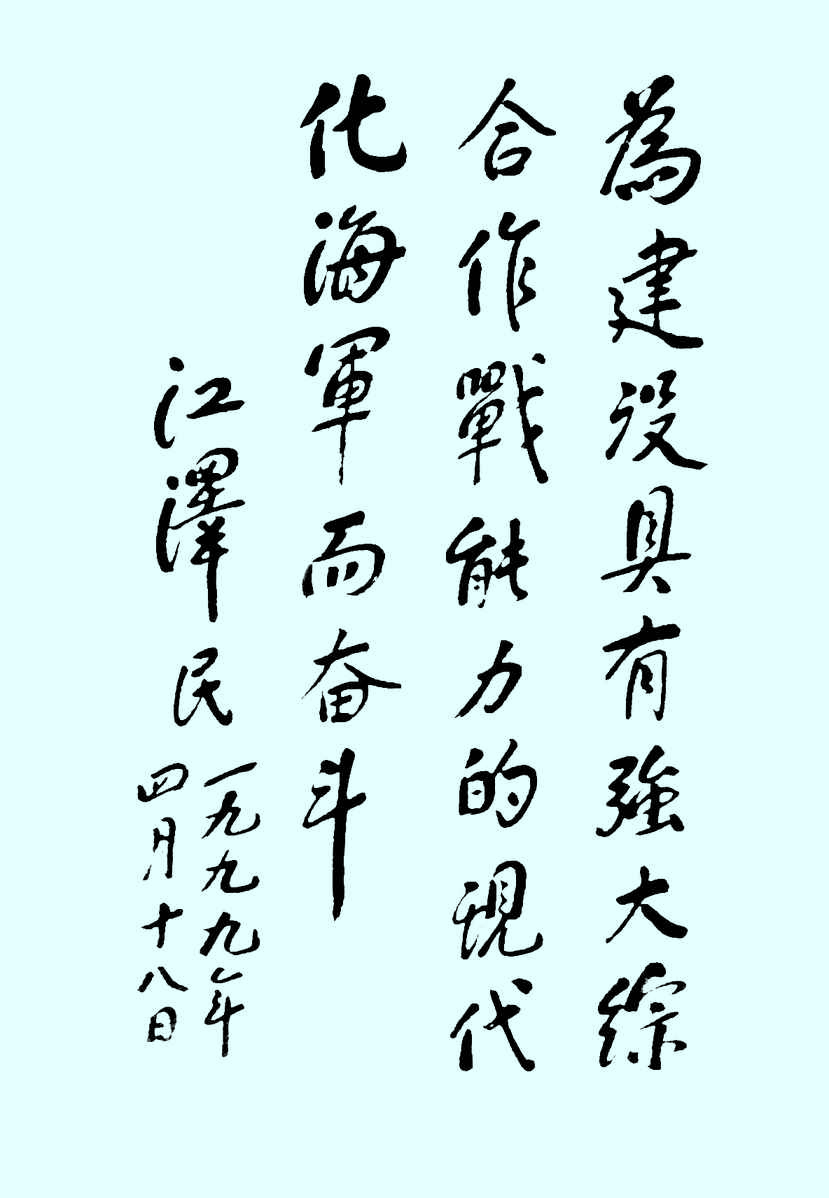 為建设具有強大綜
合作戰能力的現代
化海軍而奋斗
江澤民
一九九九年
四月十八日